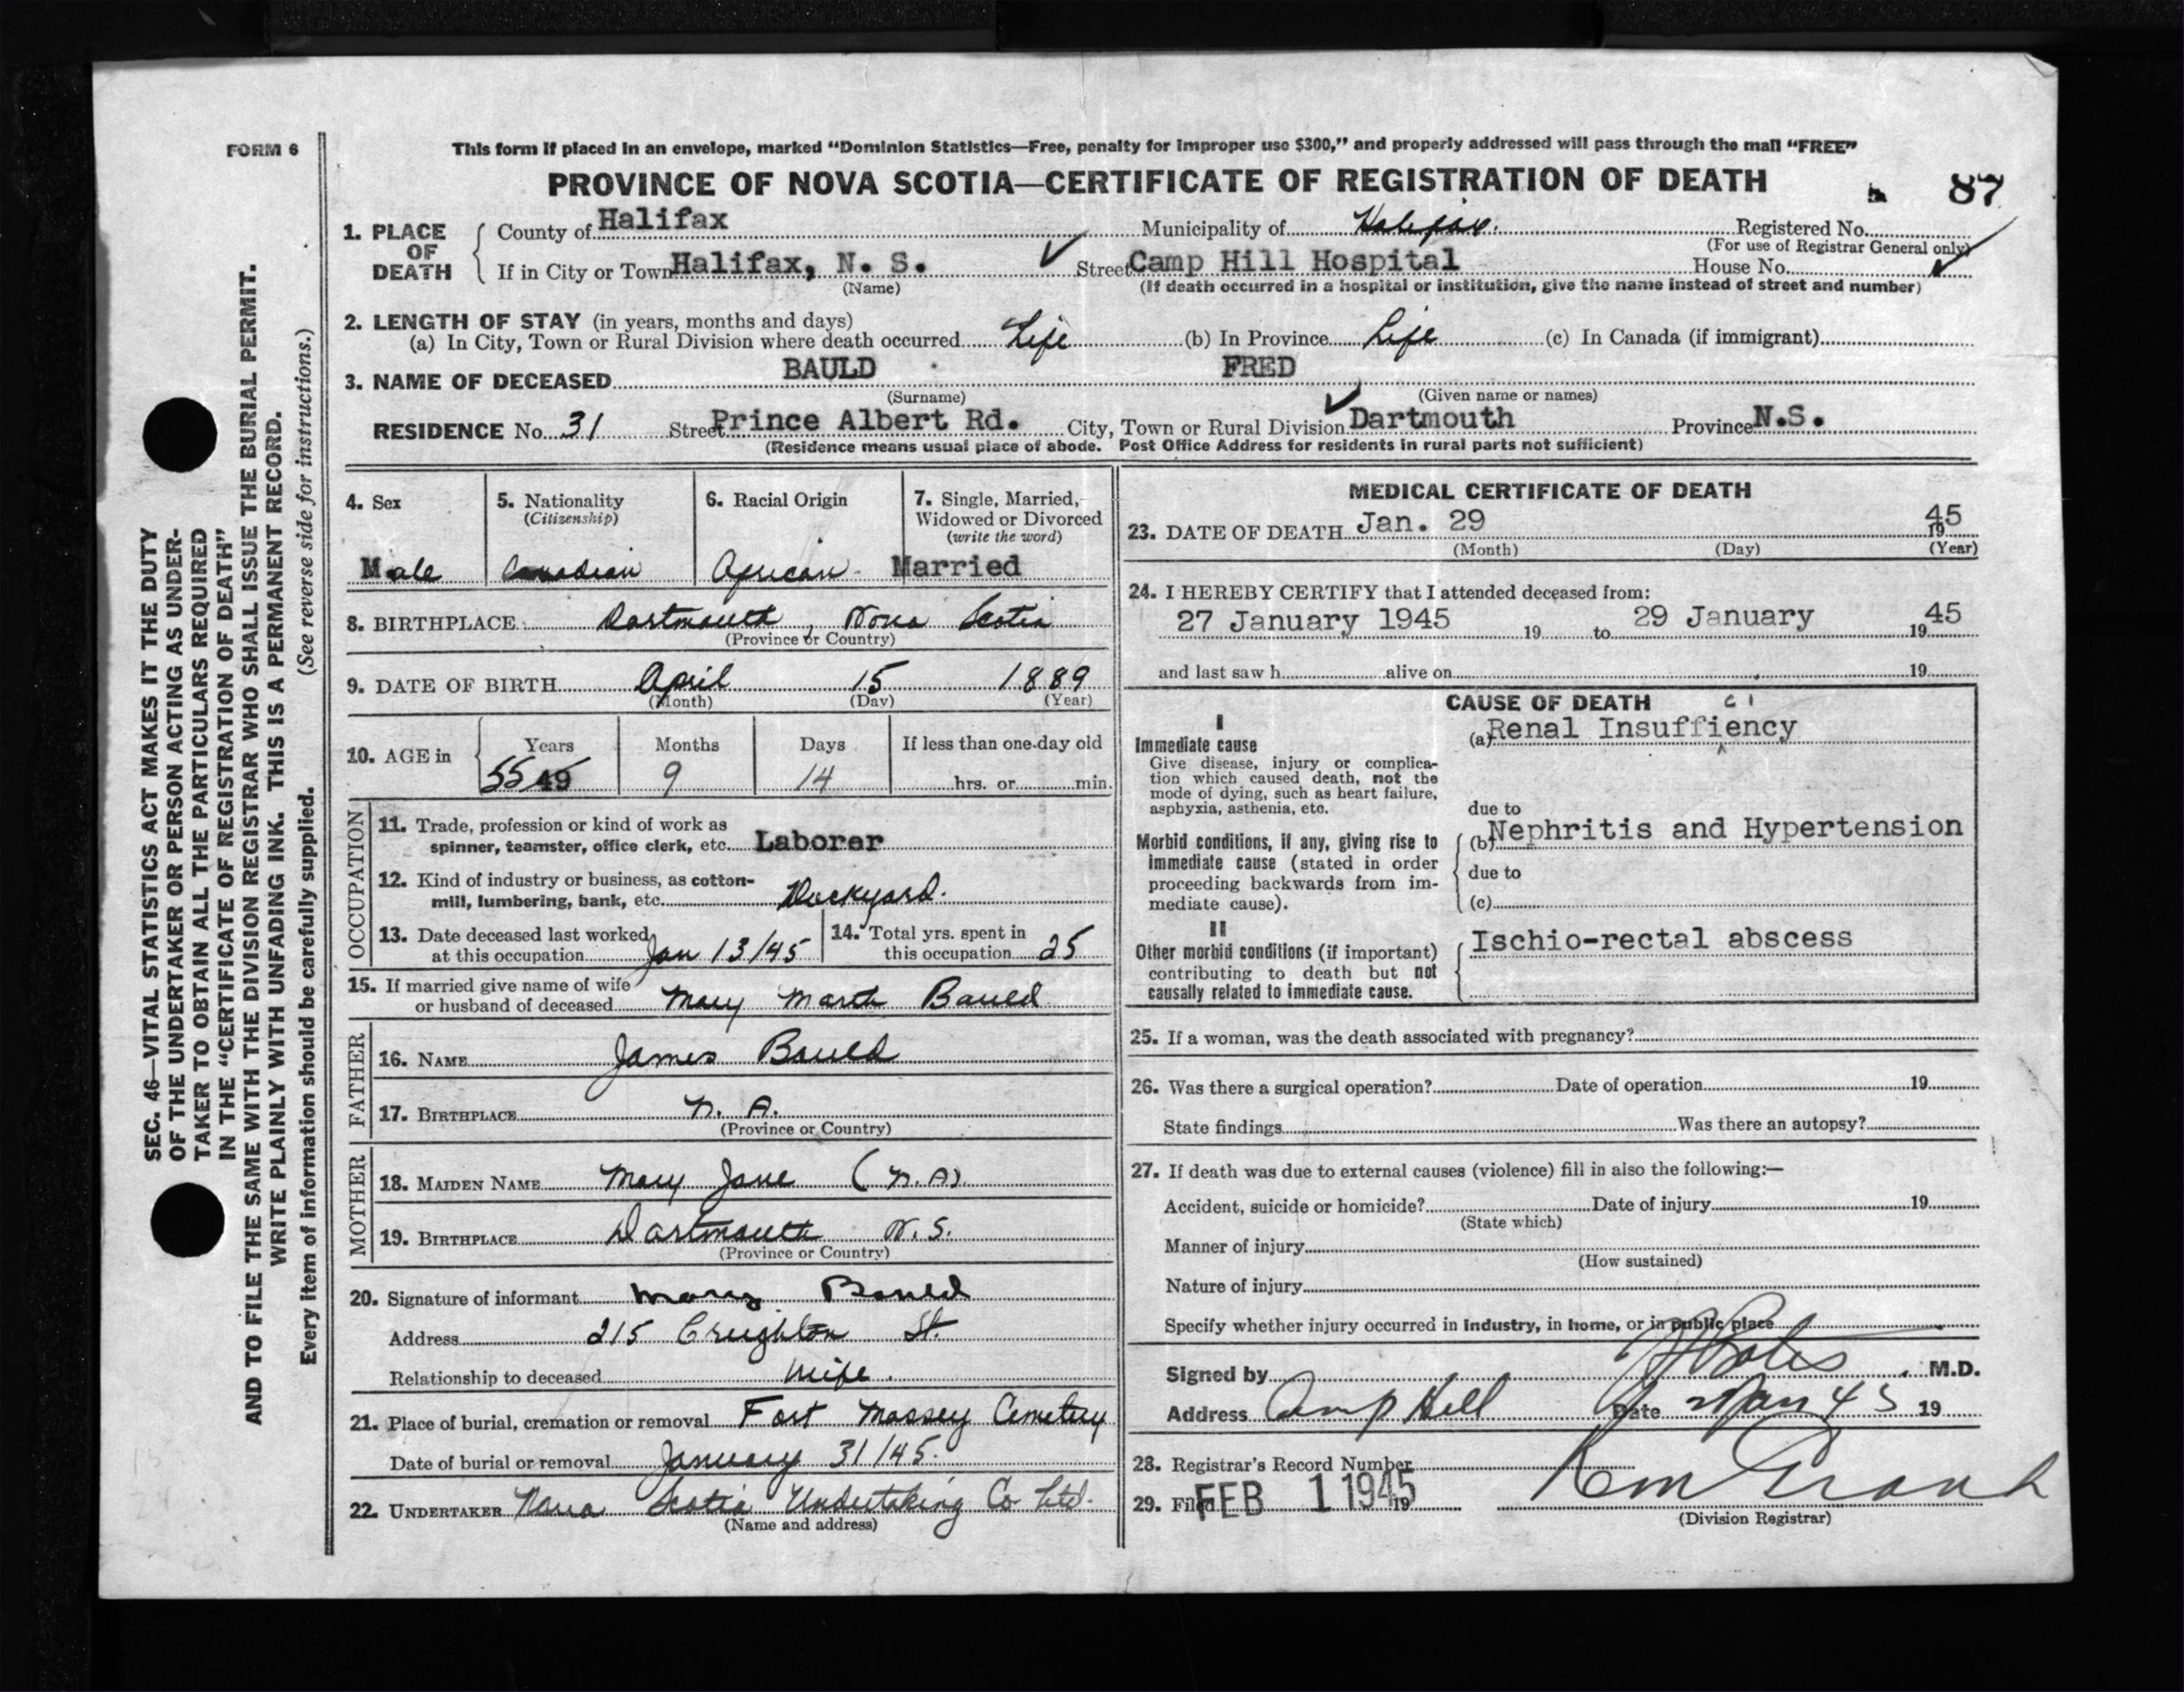 FORM 6
This form if placed in an envelope, marked “Dominion Statistics—Free, penalty for improper use $300,” and properly addressed will pass through the mail “FREE”
PROVINCE OF NOVA SCOTIA—CERTIFICATE OF REGISTRATION OF DEATH
87
1. PLACE OF DEATH
County of Halifax Municipality of Halifax. Registered No.
(For use of Registrar General only)
If in City or Town Halifax, N. S. Street Camp Hill Hospital House No.
(Name) (If death occurred in a hospital or institution, give the name instead of street and number)
2. LENGTH OF STAY (in years, months and days)
(a) In City, Town or Rural Division where death occurred Life (b) In Province Life (c) In Canada (if immigrant)
3. NAME OF DECEASED BAULD FRED
(Surname) (Given name or names)
RESIDENCE No. 31 Street Prince Albert Rd. City, Town or Rural Division Dartmouth Province N.S.
(Residence means usual place of abode. Post Office Address for residents in rural parts not sufficient)
4. Sex
Male
5. Nationality
(Citizenship)
Canadian
6. Racial Origin
African
7. Single, Married,
Widowed or Divorced
(write the word)
Married
8. BIRTHPLACE Dartmouth, Nova Scotia
(Province or Country)
9. DATE OF BIRTH April 15 1889
(Month) (Day) (Year)
10. AGE in
Years Months Days If less than one day old
55 49 9 14 hrs. or min.
OCCUPATION
11. Trade, profession or kind of work as
spinner, teamster, office clerk, etc. Laborer
12. Kind of industry or business, as cotton-
mill, lumbering, bank, etc. Dockyard.
13. Date deceased last worked
at this occupation Jan 13/45
14. Total yrs. spent in
this occupation 25
15. If married give name of wife
or husband of deceased Mary Bauld
FATHER
16. NAME James Bauld
17. BIRTHPLACE N. A.
(Province or Country)
MOTHER
18. MAIDEN NAME Mary Jane (N.A).
19. BIRTHPLACE Dartmouth N.S.
(Province or Country)
20. Signature of informant Mary Bauld
Address 215 Creighton St.
Relationship to deceased Wife.
21. Place of burial, cremation or removal Fort Massey Cemetery
Date of burial or removal January 31/45.
22. UNDERTAKER Nova Scotia Undertaking Co Ltd.
(Name and address)
MEDICAL CERTIFICATE OF DEATH
23. DATE OF DEATH Jan. 29 1945
(Month) (Day) (Year)
24. I HEREBY CERTIFY that I attended deceased from:
27 January 1945 19 to 29 January 1945
and last saw h alive on 19
CAUSE OF DEATH
I
Immediate cause
Give disease, injury or complica-
tion which caused death, not the
mode of dying, such as heart failure,
asphyxia, asthenia, etc.
ci
(a) Renal Insuffiency
due to
Morbid conditions, if any, giving rise to
immediate cause (stated in order
proceeding backwards from im-
mediate cause).
(b) Nephritis and Hypertension
due to
(c)
II
Other morbid conditions (if important)
contributing to death but not
causally related to immediate cause.
Ischio-rectal abscess
25. If a woman, was the death associated with pregnancy?
26. Was there a surgical operation? Date of operation 19
State findings Was there an autopsy?
27. If death was due to external causes (violence) fill in also the following:—
Accident, suicide or homicide? Date of injury 19
(State which)
Manner of injury
(How sustained)
Nature of injury
Specify whether injury occurred in industry, in home, or in public place
Signed by M.D.
Address Camp Hill Date 45 19
28. Registrar's Record Number
29. Filed FEB 1 1945 19
(Division Registrar)
SEC. 46—VITAL STATISTICS ACT MAKES IT THE DUTY
OF THE UNDERTAKER OR PERSON ACTING AS UNDER-
TAKER TO OBTAIN ALL THE PARTICULARS REQUIRED
IN THE “CERTIFICATE OF REGISTRATION OF DEATH”
AND TO FILE THE SAME WITH THE DIVISION REGISTRAR WHO SHALL ISSUE THE BURIAL PERMIT.
WRITE PLAINLY WITH UNFADING INK. THIS IS A PERMANENT RECORD.
Every item of information should be carefully supplied. (See reverse side for instructions.)